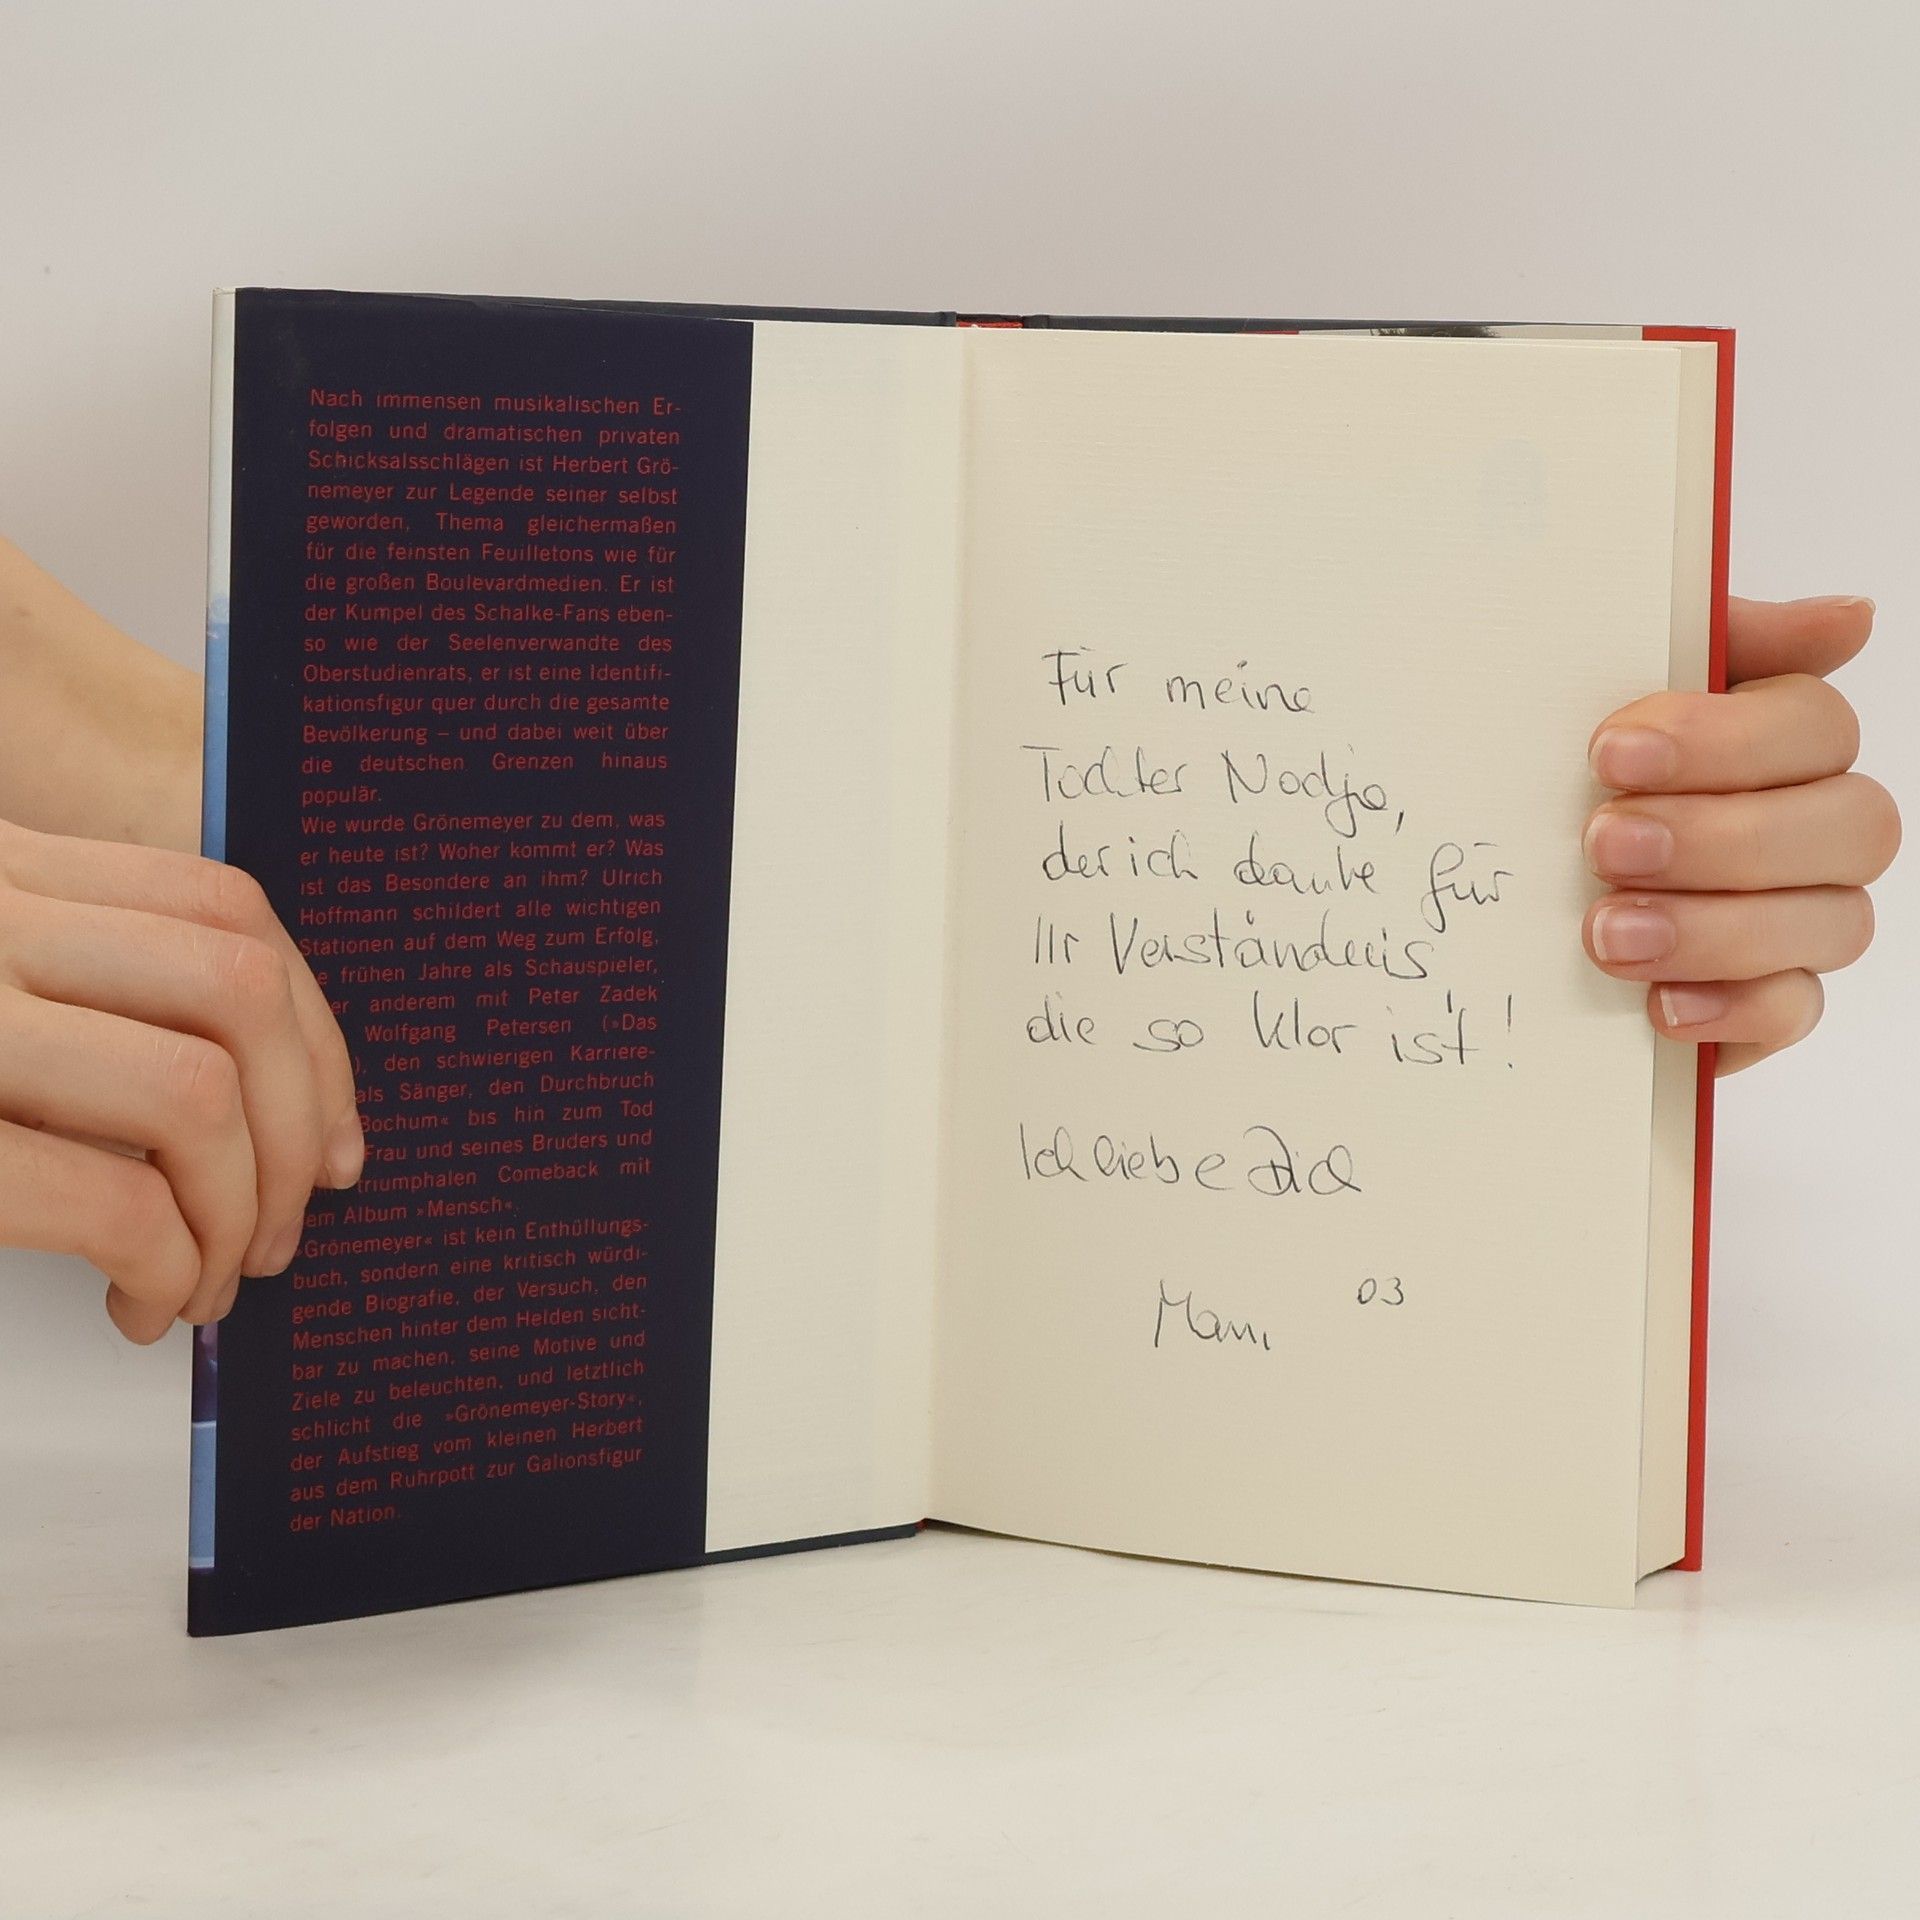 Nach immensen musikalischen Er-
folgen und dramatischen privaten
Schicksalsschlägen ist Herbert Grö-
nemeyer zur Legende seiner selbst
geworden, Thema gleichermaßen
für die feinsten Feuilletons wie für
die großen Boulevardmedien. Er ist
der Kumpel des Schalke-Fans eben-
so wie der Seelenverwandte des
Oberstudienrats, er ist eine Identifi-
kationsfigur quer durch die gesamte
Bevölkerung – und dabei weit über
die deutschen Grenzen hinaus
populär.
Wie wurde Grönemeyer zu dem, was
er heute ist? Woher kommt er? Was
ist das Besondere an ihm? Ulrich
Hoffmann schildert alle wichtigen
Stationen auf dem Weg zum Erfolg,
frühen Jahre als Schauspieler,
anderem mit Peter Zadek
Wolfgang Petersen (»Das
), den schwierigen Karriere-
als Sänger, den Durchbruch
Bochum« bis hin zum Tod
Frau und seines Bruders und
triumphalen Comeback mit
em Album »Mensch«.
»Grönemeyer« ist kein Enthüllungs-
buch, sondern eine kritisch würdi-
gende Biografie, der Versuch, den
Menschen hinter dem Helden sicht-
bar zu machen, seine Motive und
Ziele zu beleuchten, und letztlich
schlicht die »Grönemeyer-Story«,
der Aufstieg vom kleinen Herbert
aus dem Ruhrpott zur Galionsfigur
der Nation.
Für meine
Tochter Nadja,
der ich danke für
Ihr Verständnis
die so klar ist!
Ich liebe Dich
Mam 03